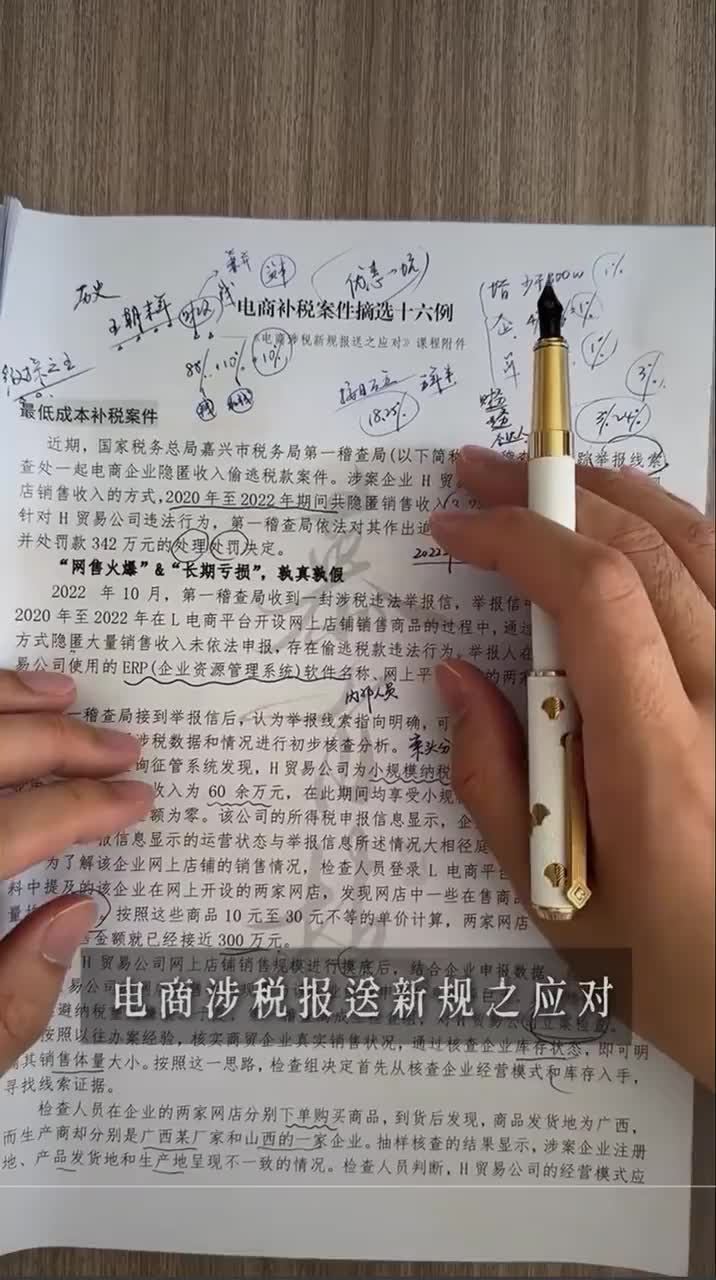 历史
王朝末年
优惠一坑
少于500w
1%
电商补税案件摘选十六例
《电商涉税新规报送之应对》课程附件
1%
88%
110%
10%
18.25%
3%
最低成本补税案件
近期，国家税务总局嘉兴市税务局第一稽查局(以下简称
举报线索
查处一起电商企业隐匿收入偷逃税款案件。涉案企业 H 贸
店销售收入的方式，2020 年至 2022 年期间共隐匿销售收入
针对 H 贸易公司违法行为，第一稽查局依法对其作出追
并处罚款 342 万元的处理处罚决定。
2022年
“网售火爆”&“长期亏损”，孰真孰假
2022 年 10 月，第一稽查局收到一封涉税违法举报信，举报信
2020 年至 2022 年在 L 电商平台开设网上店铺销售商品的过程中，通过
方式隐匿大量销售收入未依法申报，存在偷逃税款违法行为。举报人在
易公司使用的 ERP(企业资源管理系统)软件名称、网上平
的两
内部人员
一稽查局接到举报信后，认为举报线索指向明确，可
涉税数据和情况进行初步核查分析。
询征管系统发现，H 贸易公司为小规模纳税
收入为 60 余万元，在此期间均享受小规
额为零。该公司的所得税申报信息显示，企
报信息显示的运营状态与举报信息所述情况大相径庭
为了解该企业网上店铺的销售情况，检查人员登录 L 电商平台
料中提及的该企业在网上开设的两家网店，发现网店中一些在售商品
量
按照这些商品 10 元至 30 元不等的单价计算，两家网店
售金额就已经接近 300 万元。
H 贸易公司网上店铺销售规模进行摸底后，结合企业申报数据
电商涉税报送新规之应对
避纳税
立案检查
按照以往办案经验，核实商贸企业真实销售状况，通过核查企业库存状态，即可明
其销售体量大小。按照这一思路，检查组决定首先从核查企业经营模式和库存入手，
寻找线索证据。
检查人员在企业的两家网店分别下单购买商品，到货后发现，商品发货地为广西，
而生产商却分别是广西某厂家和山西的一家企业。抽样核查的结果显示，涉案企业注册
地、产品发货地和生产地呈现不一致的情况。检查人员判断，H 贸易公司的经营模式应